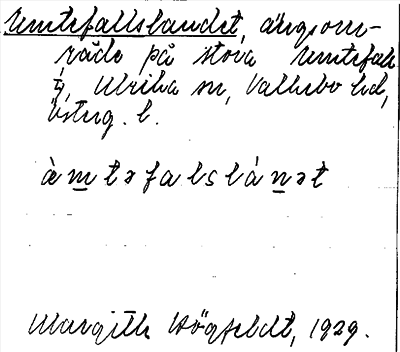 Emtefallslandet, ängsom-
råde på stora Emtefall
Ulrika sn, Valkebo hd,
Östug. l.
àmtəfalslánət
Margith Högfeldt, 1929.